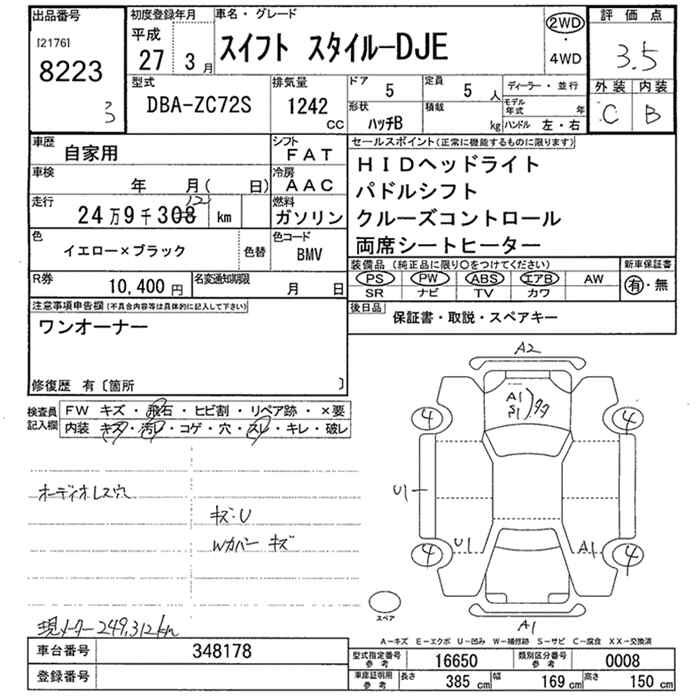 出品番号
[2176]
8223
3
初度登録年月
平成
27 3月
車名・グレード
スイフト スタイル-DJE
2WD
・
4WD
評価点
3.5
型式
DBA-ZC72S
排気量
1242
CC
ドア
5
定員
5
人
形状
ハッチB
積載
kg
ディーラー・並行
モデル年式 年
ハンドル 左・右
外装 内装
C B
車歴
自家用
シフト
FAT
車検
年 月( 日)
冷房
AAC
走行
24万9千308 km
12
燃料
ガソリン
色
イエロー×ブラック
色替
色コード
BMV
R券
10,400円
名変通知期限
月 日
セールスポイント(正常に機能するものに限ります)
HIDヘッドライト
パドルシフト
クルーズコントロール
両席シートヒーター
装備品(純正品に限り○をつけてください)
PS PW ABS エアB AW
SR ナビ TV カワ
新車保証書
有・無
後日品
保証書・取説・スペアキー
注意事項申告欄(不具合内容等は具体的に記入して下さい)
ワンオーナー
修復歴 有〔箇所 〕
検査員記入欄
FW キズ・飛石・ヒビ割・リペア跡・×要
内装 キズ・汚レ・コゲ・穴・スレ・キレ・破レ
オーディオレス穴
キズ・U
Wカバー キズ
現メーター249,312km
A2
A1
S1
タタ
4
4
U1
U1
A1
4
4
A1
スペア
A-キズ E-エクボ U-凹み W-補修跡 S-サビ C-腐食 XX-交換済
車台番号
348178
登録番号
型式指定番号
参考
16650
類別区分番号
参考
0008
車庫証明用
参考
長さ
385cm
幅
169cm
高さ
150cm